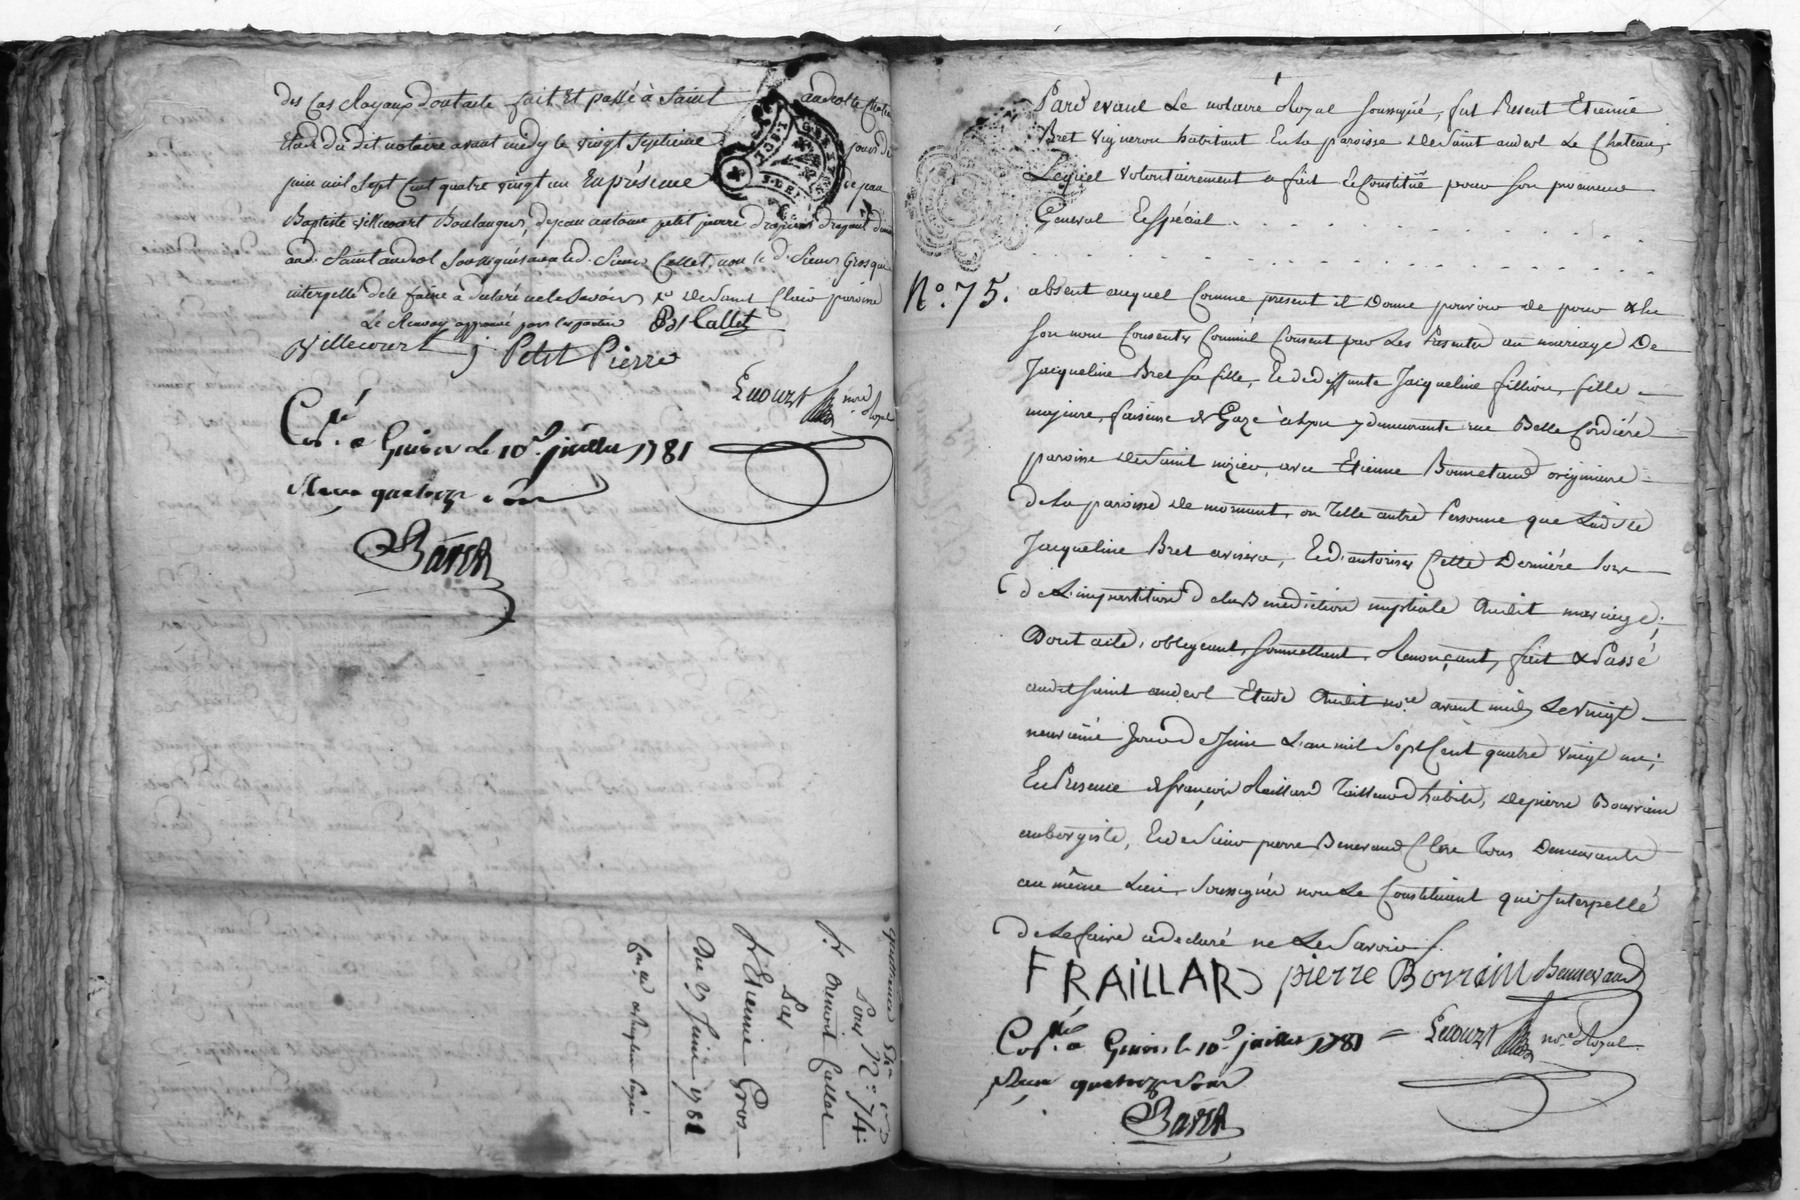 des cas Royaux dont acte fait Et passé à Saint andeol le Chateau
Etude du dit notaire avant midy le vingt Septieme jour de
juin mil Sept Cent quatre vingt un En présence de jean
Baptiste villecourt Boulanger, de jean antoine petit pierre drapier drapant
aud. Saint andeol Soussignés avec led. Sieur Callet, non le d. Sieur Gros qui
interpellé de le faire a déclaré ne le Savoir de Saint Clair paroisse
Le Renvoy approuvé par les parties Bt Callet
Villecourt j Petit Pierre
not.re Royal
Con.lé a Givors Le 10.e juillet 1781
Reçu quatorze sous
Baret
quittance
Pour N.o 74.
Sr. Benoit Callet
Par
Sr Etienne Gros
Du 27 Juin 1781
Pardevant Le notaire Royal Soussigné, fut Present Etienne
Bret vigneron habitant En la paroisse de Saint andeol Le Chateau,
Lequel volontairement a fait & Constitué pour Son procureur
General & Spécial . . . . . . . . . . . .
. . . . . . . . . . . . . . . .
N.o 75. absent auquel Comme present il Donne pouvoir de pour & En
Son nom Consentir Comme il Consent par Les Presentes au mariage De
Jacqueline Bret Sa fille, & de deffunte Jacqueline fillion, fille
majeure, faiseuse de Gaze à Lyon y demeurante rue Belle Cordiére
paroisse de Saint nizier, avec Etienne Bonnetand originaire
de La paroisse de mornant, ou Telle autre Personne que Ladite
Jacqueline Bret avisera, & d'autoriser Cette Derniére Lors
de L'impartition de la Benediction nuptiale Dudit mariage;
Dont acte, obligeant, Soumettant, Renonçant, fait & Passé
audit Saint andeol Etude Dudit no.re avant midy Le vingt
neuvième Jour de Juin L'an mil Sept Cent quatre vingt un;
En Presence de françois Raillard Tailleur d'habits, de pierre Borrain
aubergiste, & de Sieur pierre Benevand Clerc Tous Demeurants
au même Lieu, Soussignés non Le Constituant qui Interpellé
de Le faire a declaré ne Le Savoir.
FRAILLARD pierre Borrain Benevand
Con.lé a Givors le 10.e juillet 1781
no.re Royal
Reçu quatorze Sous
Baret